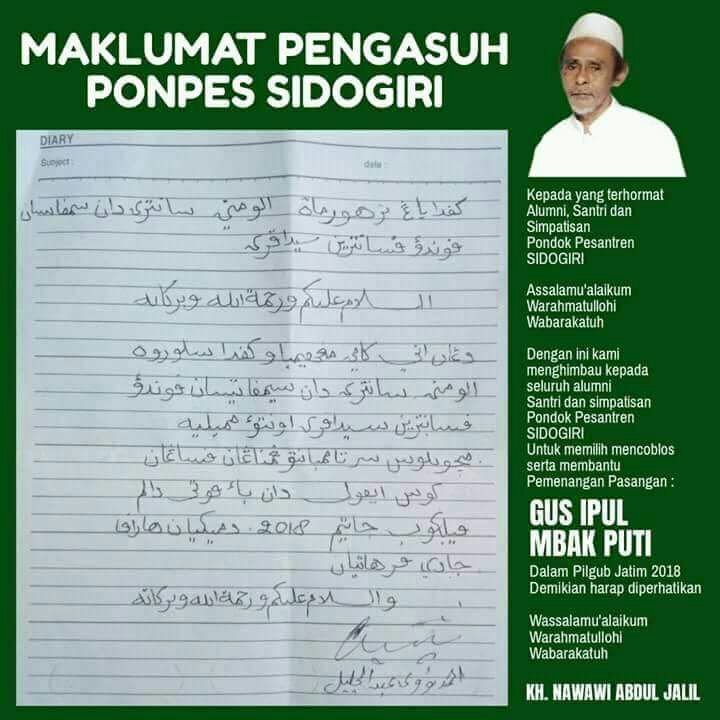 MAKLUMAT PENGASUH
PONPES SIDOGIRI
DIARY
Subject :
date :
كفدا يڠ ترهورمة الومني سانتري دان سمفاتيسان
فوندؤ فسانترين سيداڬري
السلام عليكم ورحمة الله وبركاته
دڠان اني كامي مڠهيمباو كفدا سلوروه
الومني سانتري دان سيمفاتيسان فوندؤ
فسانترين سيداڬري اونتوء مميليه
مچوبلوس سرتا ممبانتو فمناڠان فساڠان
ڬوس ايفول دان باء فوتي دالم
فيلڬوب جاتيم 2018. دميكيان هاراف
جادي فرهاتيان
والسلام عليكم ورحمة الله وبركاته
احمد نووي عبد الجليل
Kepada yang terhormat
Alumni, Santri dan
Simpatisan
Pondok Pesantren
SIDOGIRI
Assalamu'alaikum
Warahmatullohi
Wabarakatuh
Dengan ini kami
menghimbau kepada
seluruh alumni
Santri dan simpatisan
Pondok Pesantren
SIDOGIRI
Untuk memilih mencoblos
serta membantu
Pemenangan Pasangan :
GUS IPUL
MBAK PUTI
Dalam Pilgub Jatim 2018
Demikian harap diperhatikan
Wassalamu'alaikum
Warahmatullohi
Wabarakatuh
KH. NAWAWI ABDUL JALIL